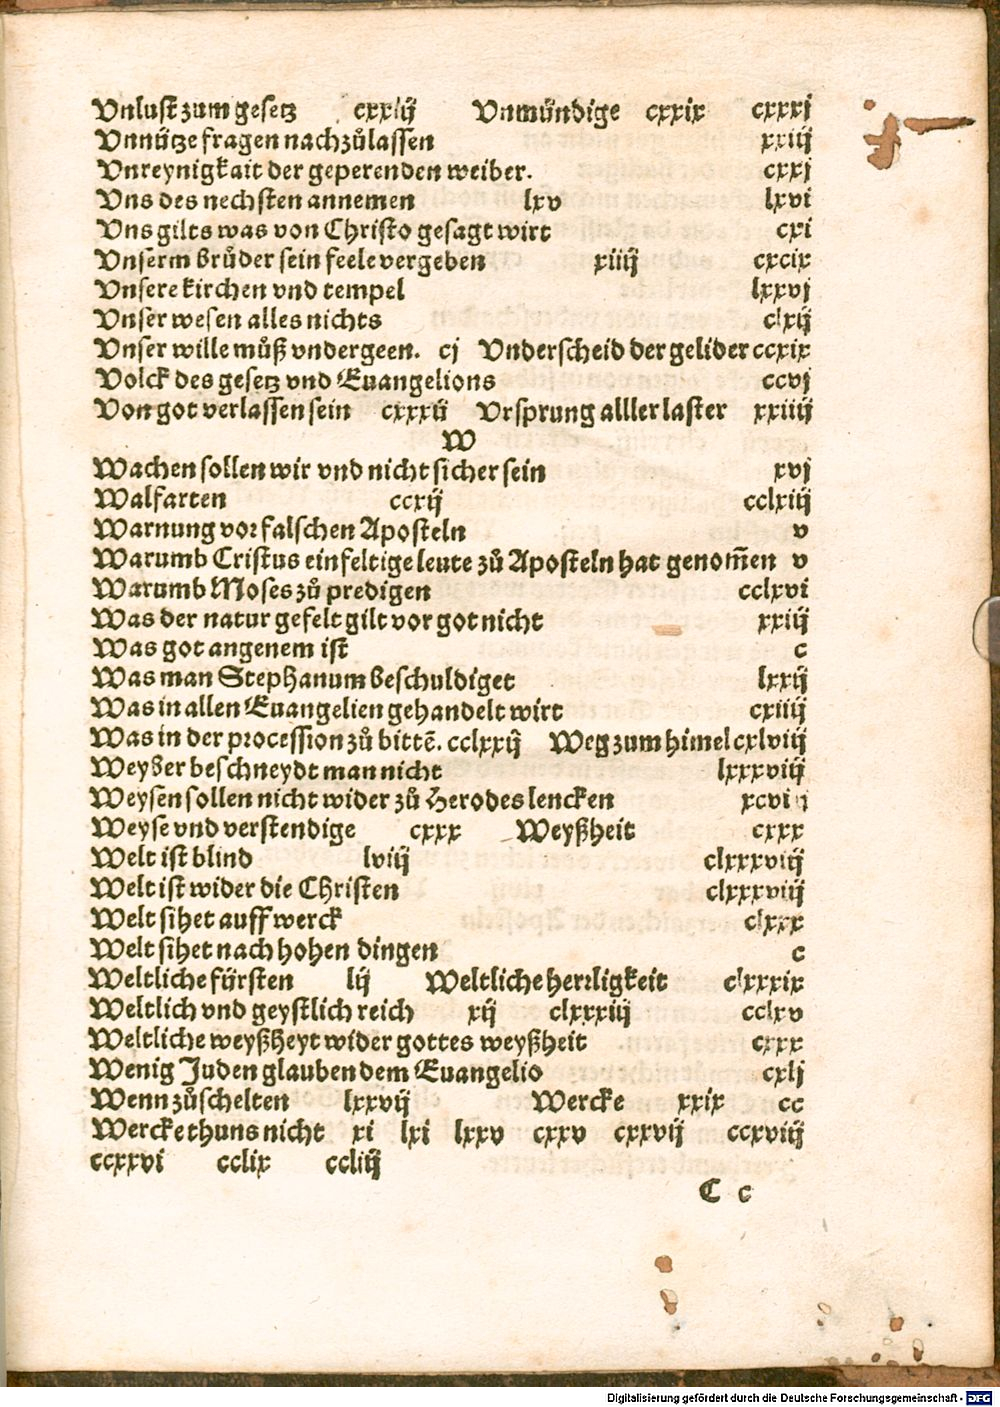 Vnlust zum gesetz cxxiij Vnmündige cxxix cxxxj
Vnnütze fragen nachzůlassen xxiij
Vnreynigkait der geperenden weiber. cxxj
Vns des nechsten annemen lxv lxvi
Vns gilts was von Christo gesagt wirt cxi
Vnserm brůder sein feele vergeben xiiij cxcix
Vnsere kirchen vnd tempel lxxvj
Vnser wesen alles nichts clxij
Vnser wille můß vndergeen. cj Vnderscheid der gelider ccxix
Volck des gesetz vnd Euangelions ccvj
Von got verlassen sein cxxxij Vrsprung alller laster xxiiij
W
Wachen sollen wir vnd nicht sicher sein xvj
Walfarten ccxij cclxiij
Warnung vor falschen Aposteln v
Warumb Cristus einfeltige leute zů Aposteln hat genom̄en v
Warumb Moses zů predigen cclxvi
Was der natur gefelt gilt vor got nicht xxiij
Was got angenem ist c
Was man Stephanum beschuldiget lxxij
Was in allen Euangelien gehandelt wirt cxiiij
Was in der procession zů bittē. cclxxij Weg zum himel cxlviij
Weyber beschneydt man nicht lxxxviij
Weysen sollen nicht wider zů Herodes lencken
Weyse vnd verstendige cxxx Weyßheit cxxx
Welt ist blind lviij clxxxviij
Welt ist wider die Christen clxxxviij
Welt sihet auff werck clxxx
Welt sihet nach hohen dingen c
Weltliche fürsten lij Weltliche herrligkeit clxxxix
Weltlich vnd geystlich reich xij clxxxiij cclxv
Weltliche weyßheyt wider gottes weyßheit cxxx
Wenig Juden glauben dem Euangelio cxlj
Wenn zůschelten lxxvij Wercke xxix cc
Wercke thuns nicht xi lxi lxxv cxxv cxxvij ccxviij
ccxxvi cclix ccliij
C c
Digitalisierung gefördert durch die Deutsche Forschungsgemeinschaft - DFG